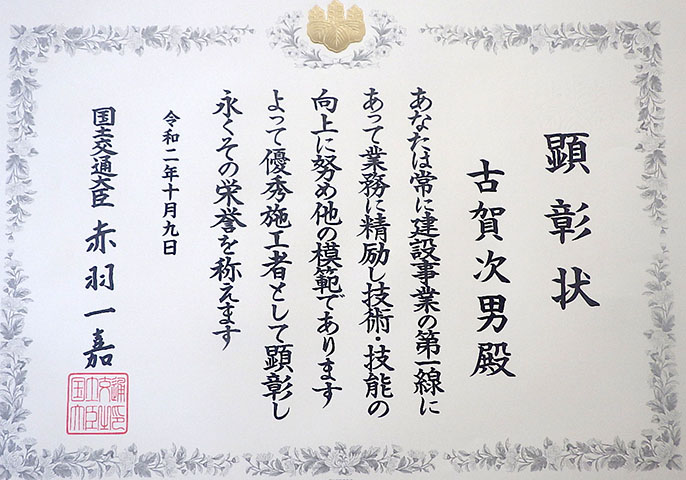 顕彰状
古賀次男殿
あなたは常に建設事業の第一線に
あって業務に精励し技術・技能の
向上に努め他の模範であります
よって優秀施工者として顕彰し
永くその栄誉を称えます
令和二年十月九日
国土交通大臣 赤羽一嘉